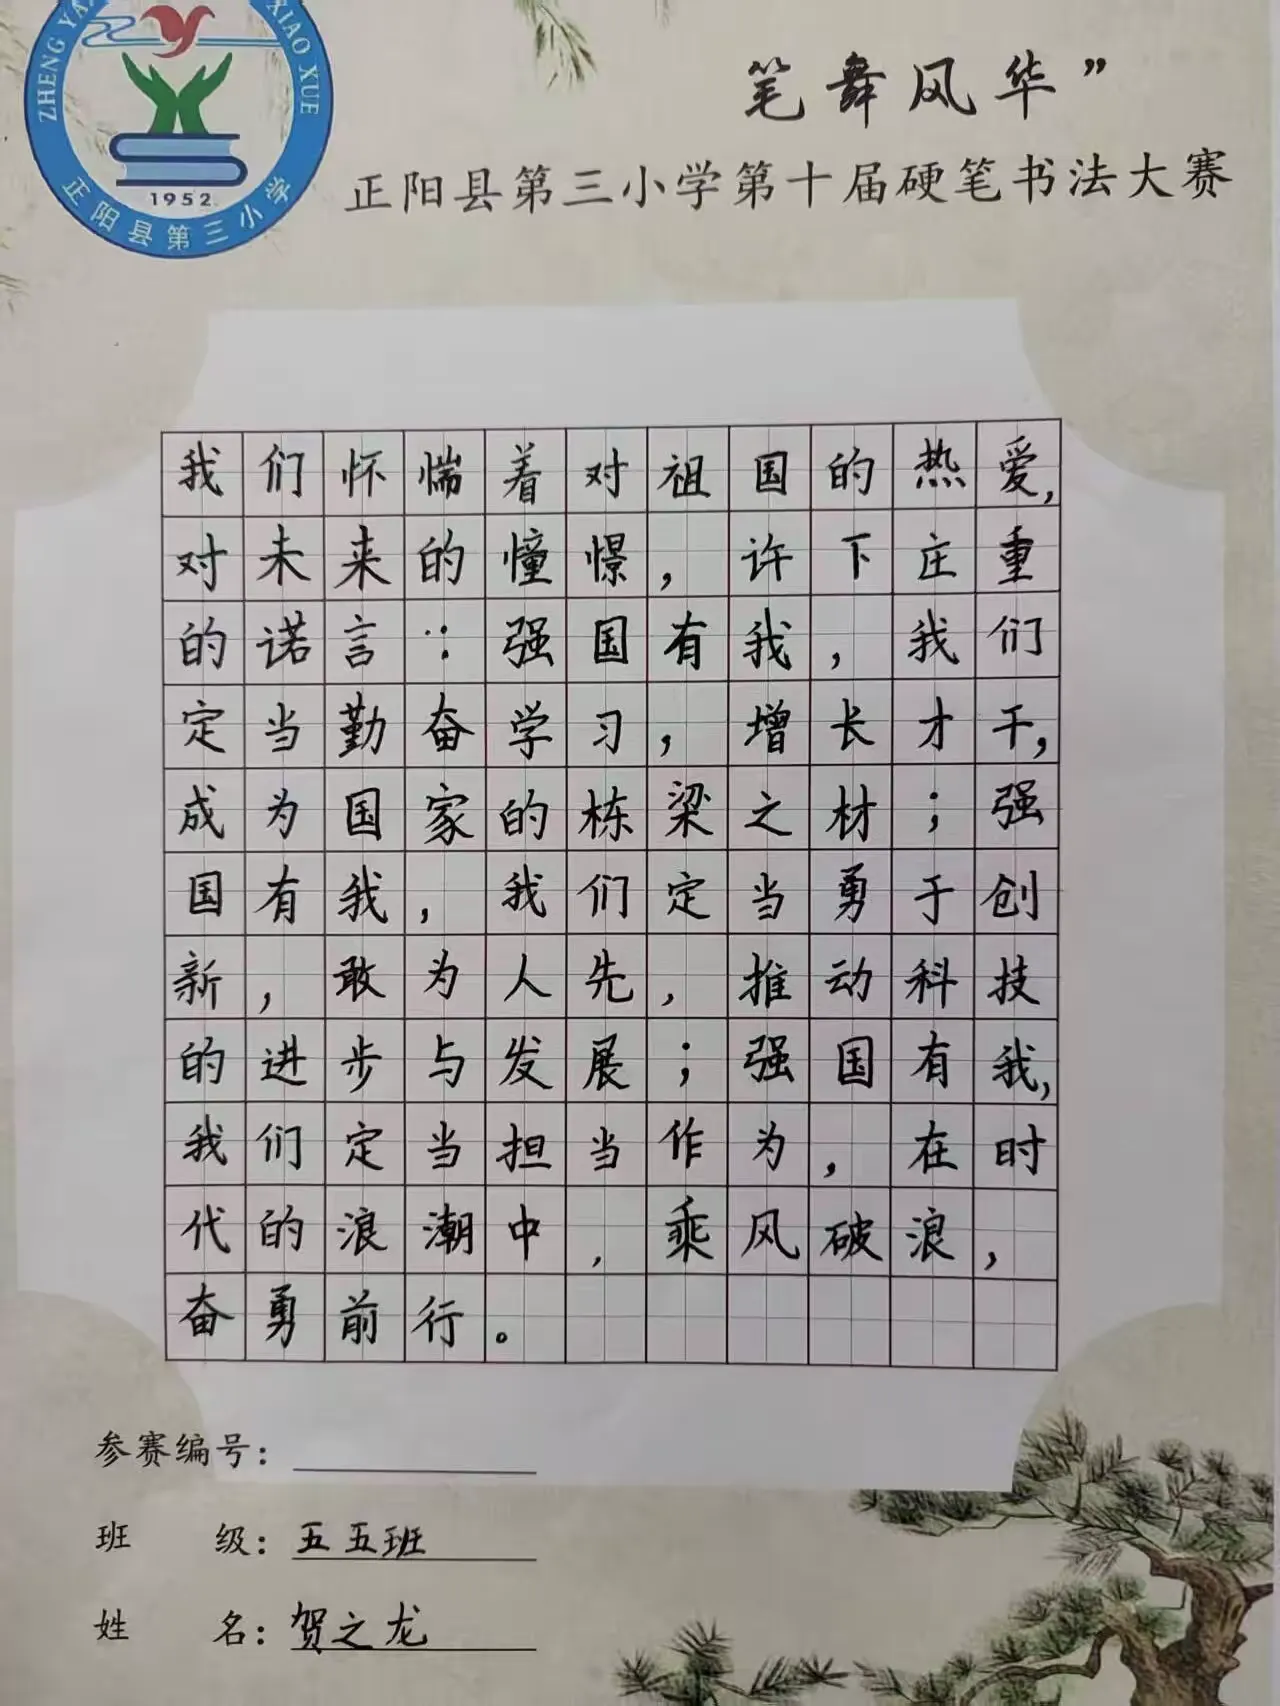 ZHENG YA
XIAO XUE
1952
正阳县第三小学
笔舞风华”
正阳县第三小学第十届硬笔书法大赛
我们怀惴着对祖国的热爱,
对未来的憧憬,许下庄重
的诺言:强国有我,我们
定当勤奋学习,增长才干,
成为国家的栋梁之材;强
国有我,我们定当勇于创
新,敢为人先,推动科技
的进步与发展;强国有我,
我们定当担当作为,在时
代的浪潮中,乘风破浪,
奋勇前行。
参赛编号:
班级:五五班
姓名:贺之龙